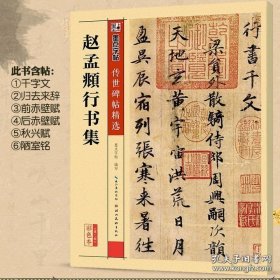 此书含帖:
①千字文
②归去来辞
③前赤壁赋
④后赤壁赋
⑤秋兴赋
⑥陋室铭
墨点字帖
传世碑帖精选
赵孟頫行书集
彩色本
行書千文
梁員外散騎侍郎周興嗣次韻
天地玄黃宇宙洪荒日月
盈昃辰宿列張寒来暑往